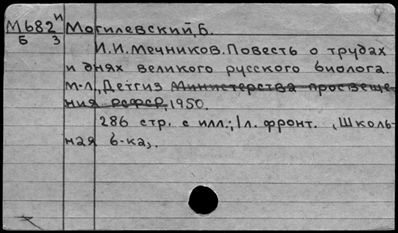 М682и Могилевский, Б.
Б 3
И.И. Мечников. Повесть о трудах
и днях великого русского биолога.
М-Л, Детгиз Министерства просвеще-
ния РСФСР, 1950.
286 стр. с илл.; 1 л. фронт. (Школь-
ная б-ка).